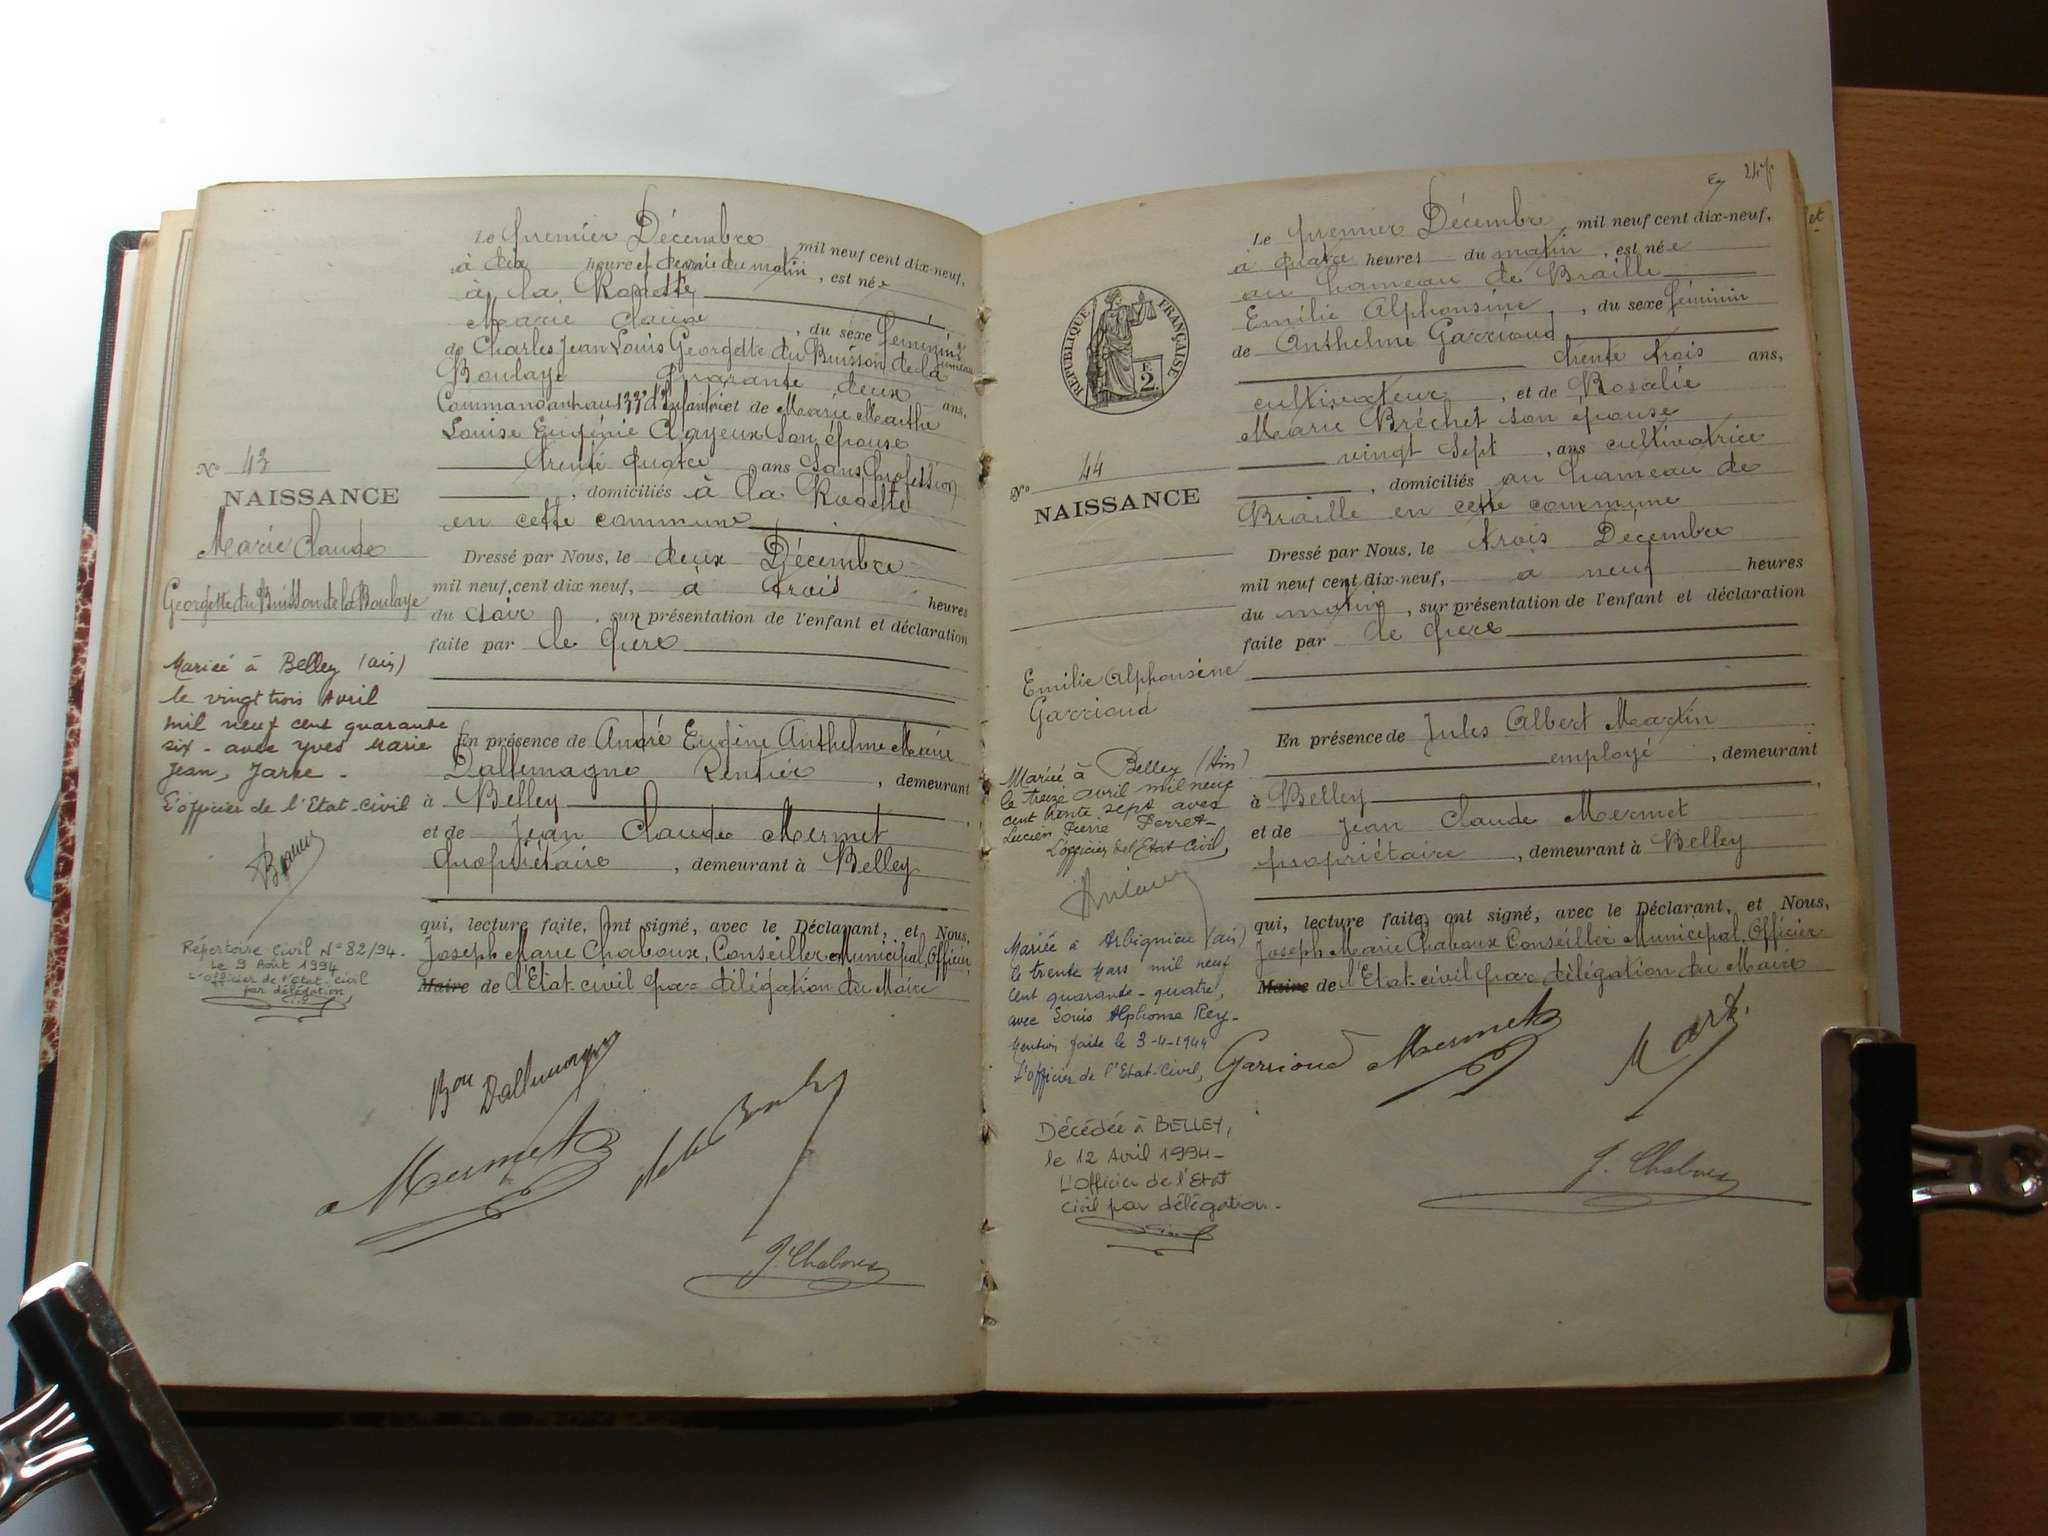 Le premier Décembre mil neuf cent dix-neuf,
à dix heure et demie du matin, est née
à la Rodette
Marie Claude, du sexe féminin
de Charles Jean Louis Georgette du Buisson de la
Boulaye quarante deux ans,
Commandant au 133e d'Infanterie et de Marie Marthe
Louise Eugénie Cayeux son épouse
trente quatre ans Sans Profession
, domiciliés à la Rodette
en cette commune
Dressé par Nous, le deux Décembre
mil neuf cent dix neuf, à trois heures
du soir, sur présentation de l'enfant et déclaration
faite par le père
En présence de André Eugène Anthelme Marie
Dallemagne Rentier, demeurant
à Belley
et de Jean Claude Mermet
propriétaire, demeurant à Belley
qui, lecture faite, ont signé, avec le Déclarant, et Nous,
Joseph Marie Chaboux, Conseiller Municipal, Officier
Maire de l'Etat-civil par délégation du Maire
Bon Dallemagne
Mermet
de la Boul
J. Chaboux
No 43
NAISSANCE
Marie Claude
Georgette du Buisson de la Boulaye
Mariée à Belley (ain)
le vingt trois Avril
mil neuf cent quarante
six - avec Yves Marie
Jean, Jarre -
L'officier de l'Etat-Civil
Répertoire Civil N° 82/94.
Le 9 Août 1994
L'officier de l'Etat-civil
par délégation,
247
Le premier Décembre mil neuf cent dix-neuf,
à quatre heures du matin, est née
au hameau de Braille
Emilie Alphonsine, du sexe féminin
de Anthelme Garrioud
trente trois ans,
cultivateur, et de Rosalie
Marie Bréchet son épouse
vingt sept, ans cultivatrice
, domiciliés au hameau de
Braille en cette commune
Dressé par Nous, le trois Décembre
mil neuf cent dix-neuf, à neuf heures
du matin, sur présentation de l'enfant et déclaration
faite par le père
En présence de Jules Albert Martin
employé, demeurant
à Belley,
et de Jean Claude Mermet
propriétaire, demeurant à Belley
qui, lecture faite, ont signé, avec le Déclarant, et Nous,
Joseph Marie Chaboux Conseiller Municipal Officier
Maire de l'Etat-civil par délégation du Maire
Garrioud Mermet Mart.
J. Chaboux
RÉPUBLIQUE FRANÇAISE
E
2.
No 44
NAISSANCE
Emilie Alphonsine
Garrioud
Mariée à Belley (Ain)
le treize avril mil neuf
cent trente sept avec
Lucien Pierre Perret-
L'officier de l'Etat Civil,
Mariée à Arbignieu (ain)
le trente Mars mil neuf
cent quarante-quatre,
avec Louis Alphonse Rey-
Mention faite le 3-4-1944
L'officier de l'Etat-Civil,
Décédée à BELLEY,
le 12 Avril 1994-
L'Officier de l'Etat
Civil par délégation.